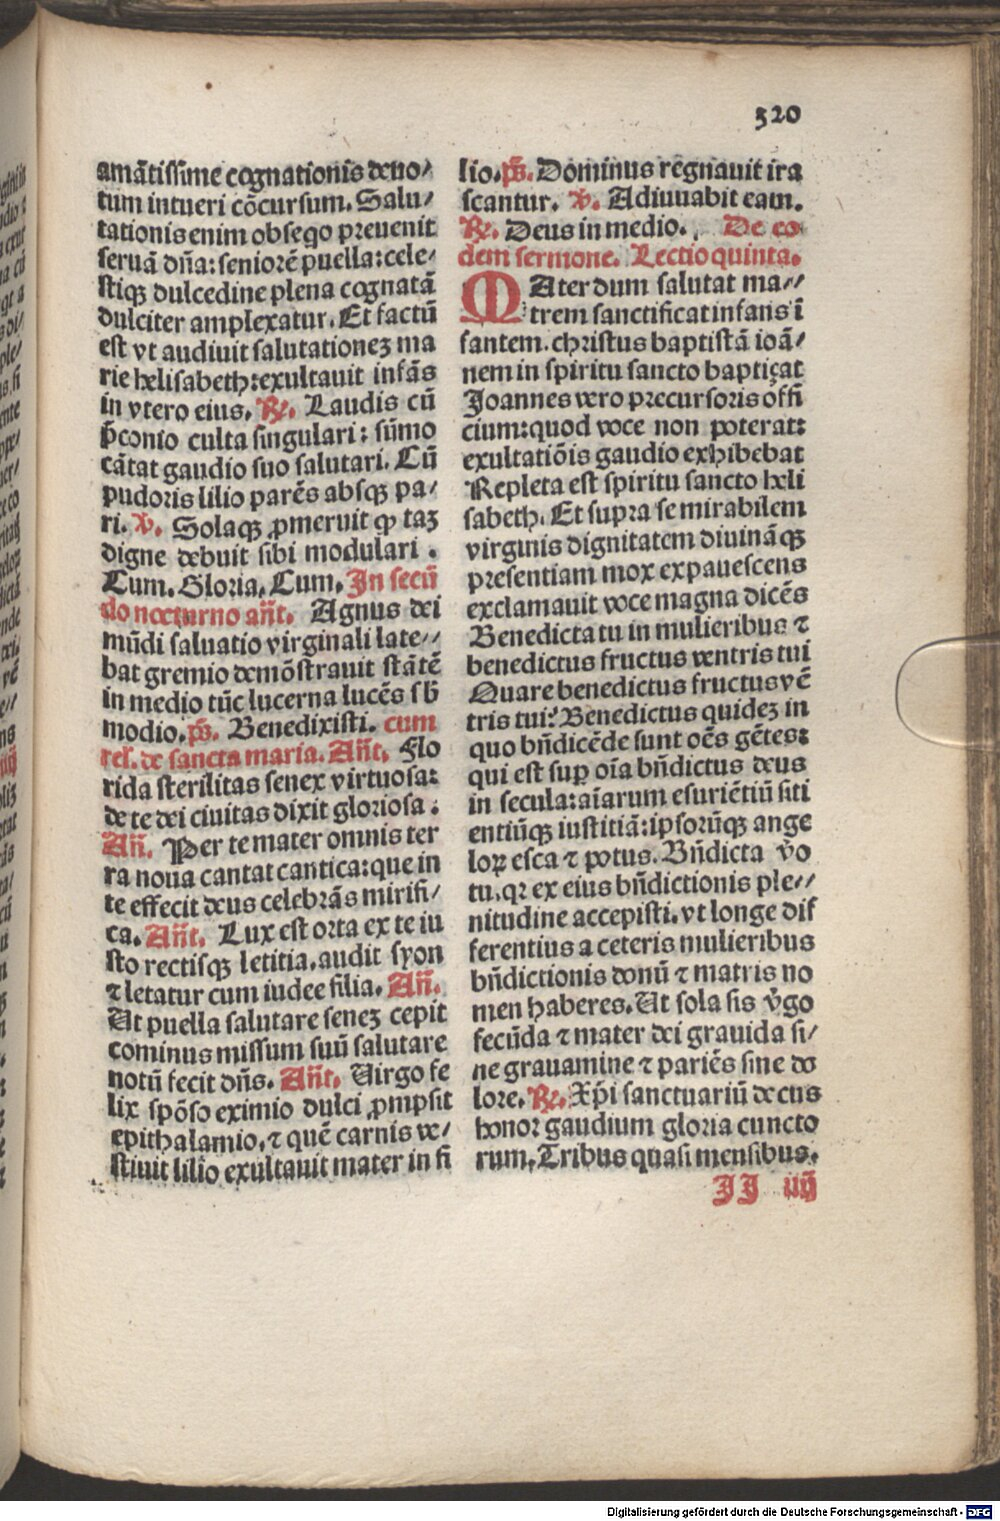 520
amātissime cognationis deuo/
tum intueri cōcursum. Salu/
tationis enim obseqo preuenit
seruā dn̄a: seniorē puella: cele/
stiqꝫ dulcedine plena cognatā
dulciter amplexatur. Et factū
est vt audiuit salutationeꝫ ma
rie helisabeth: exultauit infās
in vtero eius. R̷. Laudis cū
p̄conio culta singulari: sūmo
cātat gaudio suo salutari. Cū
pudoris lilio parēs absqꝫ pa/
ri. v̷. Solaqꝫ ꝓmeruit ꝙ taꝫ
digne debuit sibi modulari.
Cum. Gloria. Cum. In secū
do nocturno an̄t. Agnus dei
mūdi saluatio virginali late//
bat gremio demōstrauit stātē
in medio tūc lucerna lucēs sb̄
modio. ps̄. Benedixisti. cum
rel'. de sancta maria. An̄t. Flo
rida sterilitas senex virtuosa:
de te dei ciuitas dixit gloriosa:
An̄. Per te mater omnis ter
ra noua cantat cantica: que in
te effecit deus celebrās mirifi/
ca. An̄t. Lux est orta ex te iu
sto rectisqꝫ letitia. audit syon
⁊ letatur cum iudee filia. An̄.
Ut puella salutare seneꝫ cepit
cominus missum suū salutare
notū fecit dn̄s. An̄t. Uirgo fe
lix spōso eximio dulci ꝓmpsit
epithalamio. ⁊ quē carnis ve/
stiuit lilio exultauit mater in fi
lio. ps̄. Dominus regnauit ira
scantur. v̷. Adiuuabit eam.
R̷. Deus in medio. De eo
dem sermone. Lectio quinta.
MAter dum salutat ma//
trem sanctificat infans ī
fantem. christus baptistā ioā/
nem in spiritu sancto baptiçat
Joannes vero precursoris offi
cium: quod voce non poterat:
exultatiōis gaudio exhibebat
Repleta est spiritu sancto heli
sabeth. Et supra se mirabilem
virginis dignitatem diuināqꝫ
presentiam mox expauescens
exclamauit voce magna dicēs
Benedicta tu in mulieribus ⁊
benedictus fructus ventris tui
Quare benedictus fructus vē
tris tui? Benedictus quideꝫ in
quo bn̄dicēde sunt oēs gētes:
qui est suꝑ oīa bn̄dictus deus
in secula: aīarum esuriētiū siti
entiūqꝫ iustitiā: ipsorūqꝫ ange
loꝝ esca ⁊ potus. Bn̄dicta v̄o
tu. qꝛ ex eius bn̄dictionis ple//
nitudine accepisti. vt longe dif
ferentius a ceteris mulieribus
bn̄dictionis donū ⁊ matris no
men haberes. Ut sola sis v̄go
fecūda ⁊ mater dei grauida si/
ne grauamine ⁊ pariēs sine do
lore. R̷. Xp̄i sanctuariū decus
honor gaudium gloria cuncto
rum. Tribus quasi mensibus.
JJ iiij
Digitalisierung gefördert durch die Deutsche Forschungsgemeinschaft - DFG